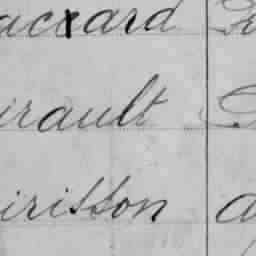 acxard
irault
irisson